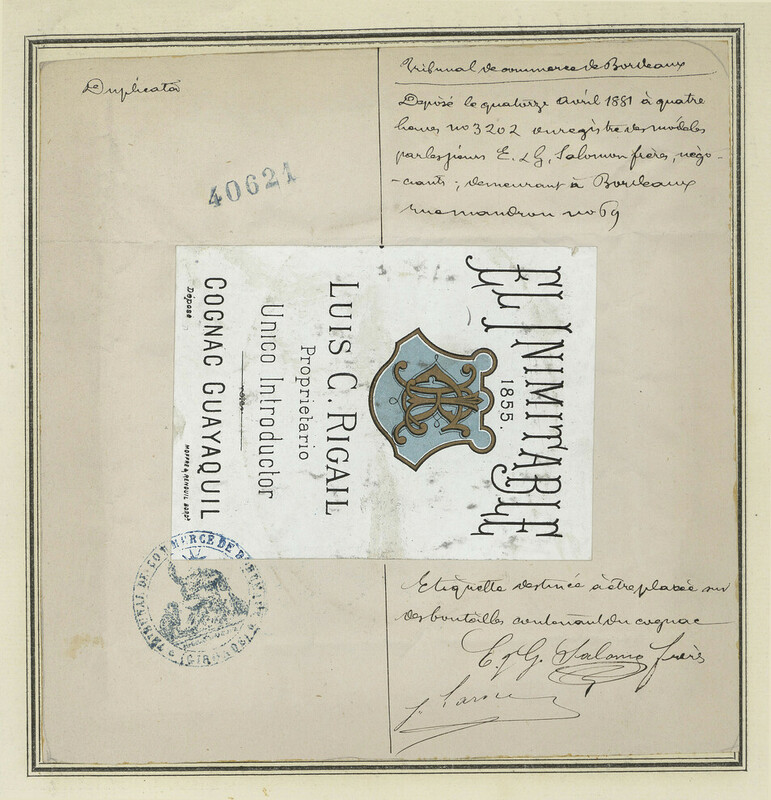 Duplicata
40621
Tribunal de commerce de Bordeaux
Déposé le quatorze avril 1881 à quatre
heures no 3202 enregistre des modèles
par les sieurs E. & G. Salomon frères, négo-
-ciants, demeurant à Bordeaux
rue mandron no 69
EL INIMITABLE
1855.
LUIS C. RIGAIL
Proprietario
Unico Introductor
COGNAC GUAYAQUIL
Déposé
Etiquette destinée à être placée sur
des bouteilles contenant du cognac
E. & G. Salomon frères
TRIBUNAL DE COMMERCE DE BORDEAUX
(GIRONDE)